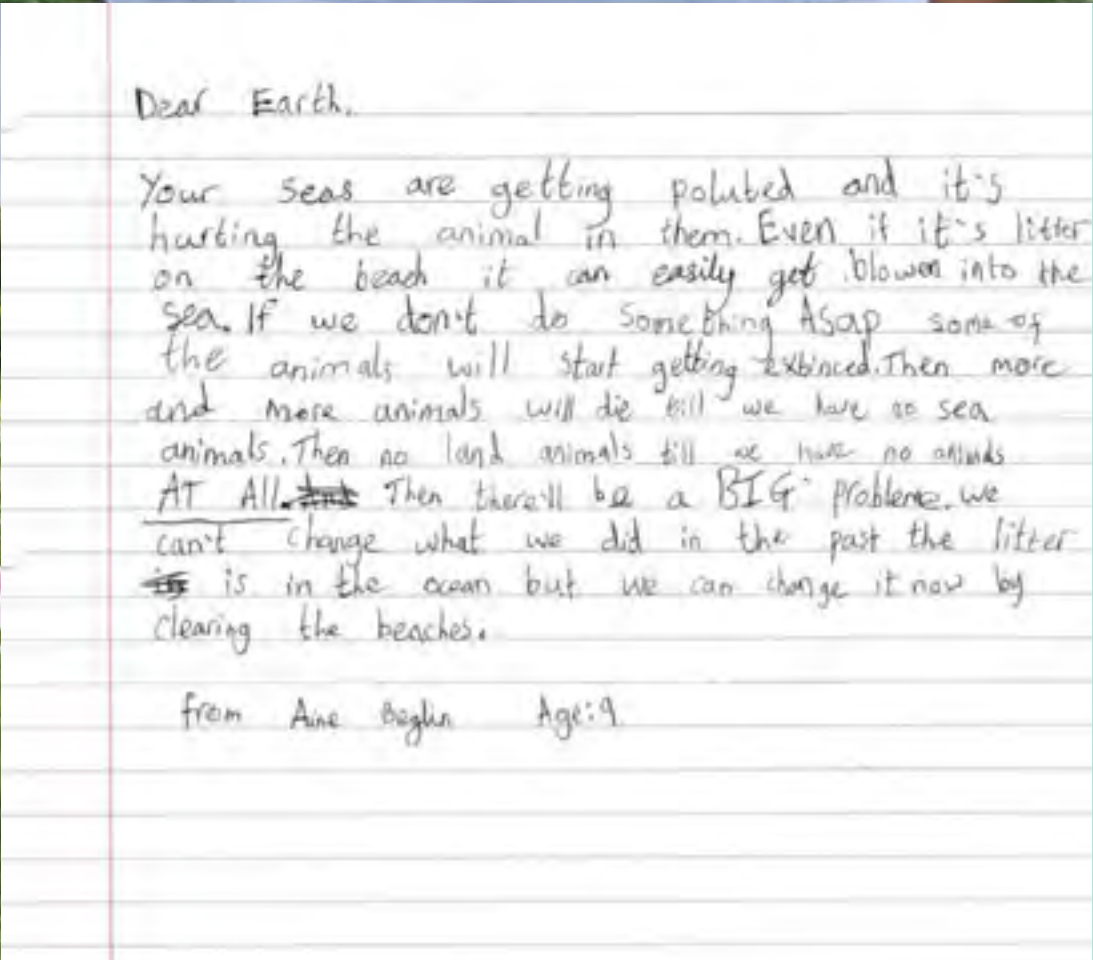 Dear Earth.
Your seas are getting poluted and it's
hurting the animal in them. Even if it's litter
on the beach it can easily get blowen into the
sea. If we don't do something Asap some of
the animals will start getting exbinced. Then more
and more animals will die till we have no sea
animals. Then no land animals till we have no animals
AT All. Then there'll be a BIG probleme. we
can't change what we did in the past the litter
is in the ocean but we can change it now by
clearing the beaches.
from Aine Beglin Age: 9